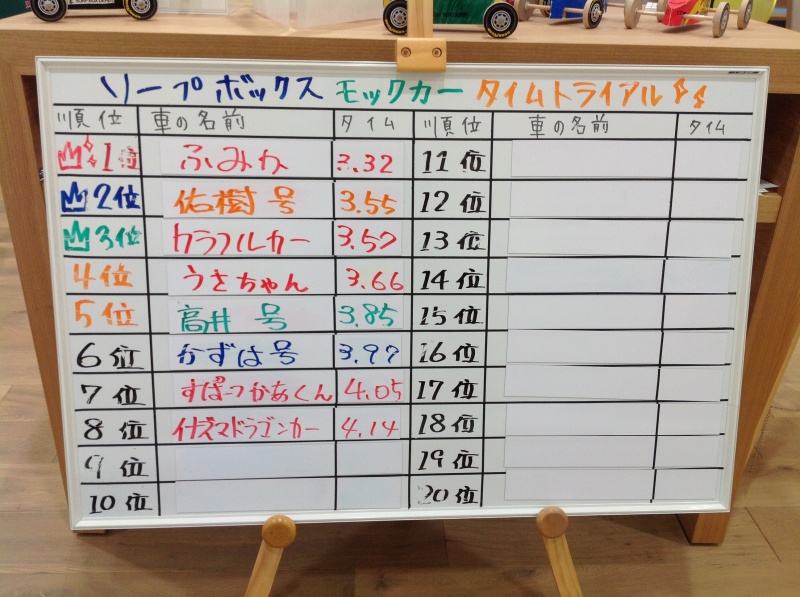 ソープボックス モックカー タイムトライアル
順位 車の名前 タイム 順位 車の名前 タイム
1位 ふみか 3.32 11位
2位 佑樹号 3.55 12位
3位 カラフルカー 3.57 13位
4位 うさちゃん 3.66 14位
5位 高井号 3.85 15位
6位 かずは号 3.97 16位
7位 すぽーつかあくん 4.05 17位
8位 イナズマドラゴンカー 4.14 18位
9位 19位
10位 20位